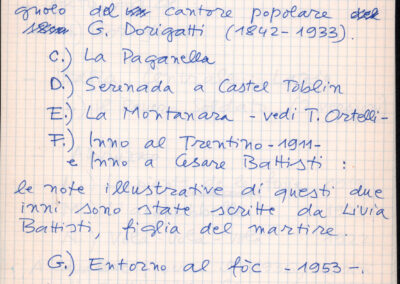 gnolo del cantore popolare
G. Dorigatti (1842-1933).
C.) La Paganella
D.) Serenada a Castel Toblin
E.) La Montanara - vedi T. Ortelli -
F.) Inno al Trentino - 1911 -
e Inno a Cesare Battisti :
le note illustrative di questi due
inni sono state scritte da Livia
Battisti, figlia del martire.
G.) Entorno al fòc - 1953 -.